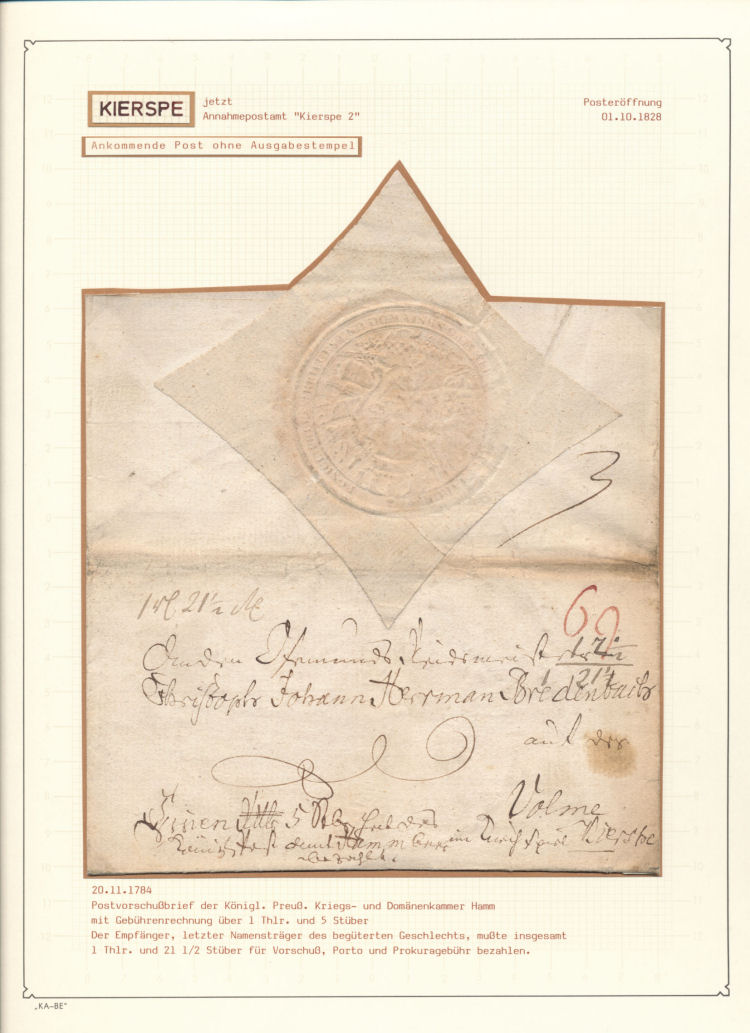 KIERSPE
jetzt
Annahmepostamt "Kierspe 2"
Posteröffnung
01.10.1828
Ankommende Post ohne Ausgabestempel
21 1/2
An den
Christoph Johann Herrman Bredenbach
auf der
Volme
Einen 5 Stbr hat das
im Kirchspiel Kierspe
bezahlt.
20.11.1784
Postvorschußbrief der Königl. Preuß. Kriegs- und Domänenkammer Hamm
mit Gebührenrechnung über 1 Thlr. und 5 Stüber
Der Empfänger, letzter Namensträger des begüterten Geschlechts, mußte insgesamt
1 Thlr. und 21 1/2 Stüber für Vorschuß, Porto und Prokuragebühr bezahlen.
„KA-BE"